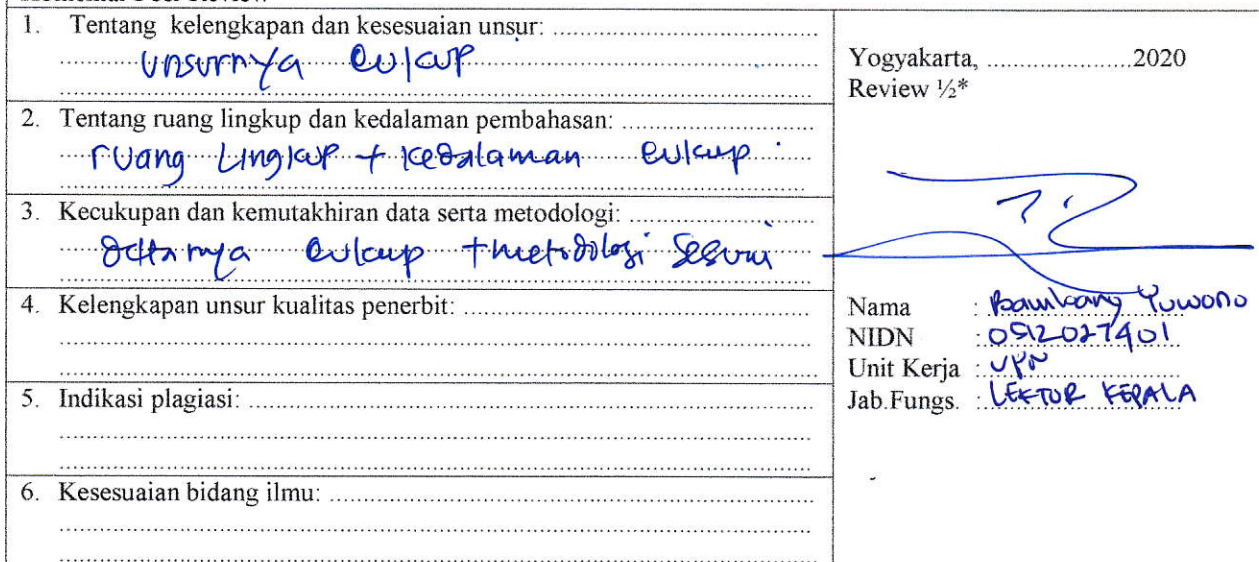 1. Tentang kelengkapan dan kesesuaian unsur: ......................................
unsurnya cukup
2. Tentang ruang lingkup dan kedalaman pembahasan: ............................
ruang Lingkup + kedalaman cukup
3. Kecukupan dan kemutakhiran data serta metodologi: ...........................
datanya cukup + metodologi sesuai
4. Kelengkapan unsur kualitas penerbit: ...................................................
5. Indikasi plagiasi: .................................................................................
6. Kesesuaian bidang ilmu: .....................................................................
Yogyakarta, .....................2020
Review ½*
Nama : Bambang Yuwono
NIDN : 0512027401
Unit Kerja : UPN
Jab.Fungs. : LEKTOR KEPALA